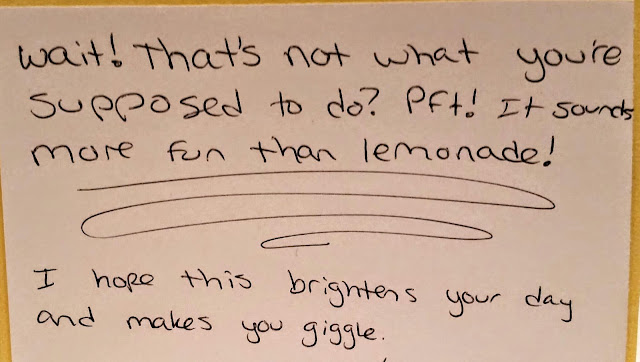 Wait! That's not what you're
supposed to do? Pft! It sounds
more fun than lemonade!
I hope this brightens your day
and makes you giggle.